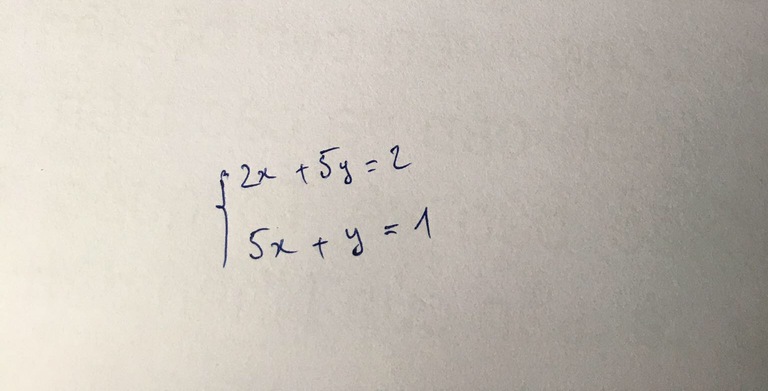 2x + 5y = 2
5x + y = 1